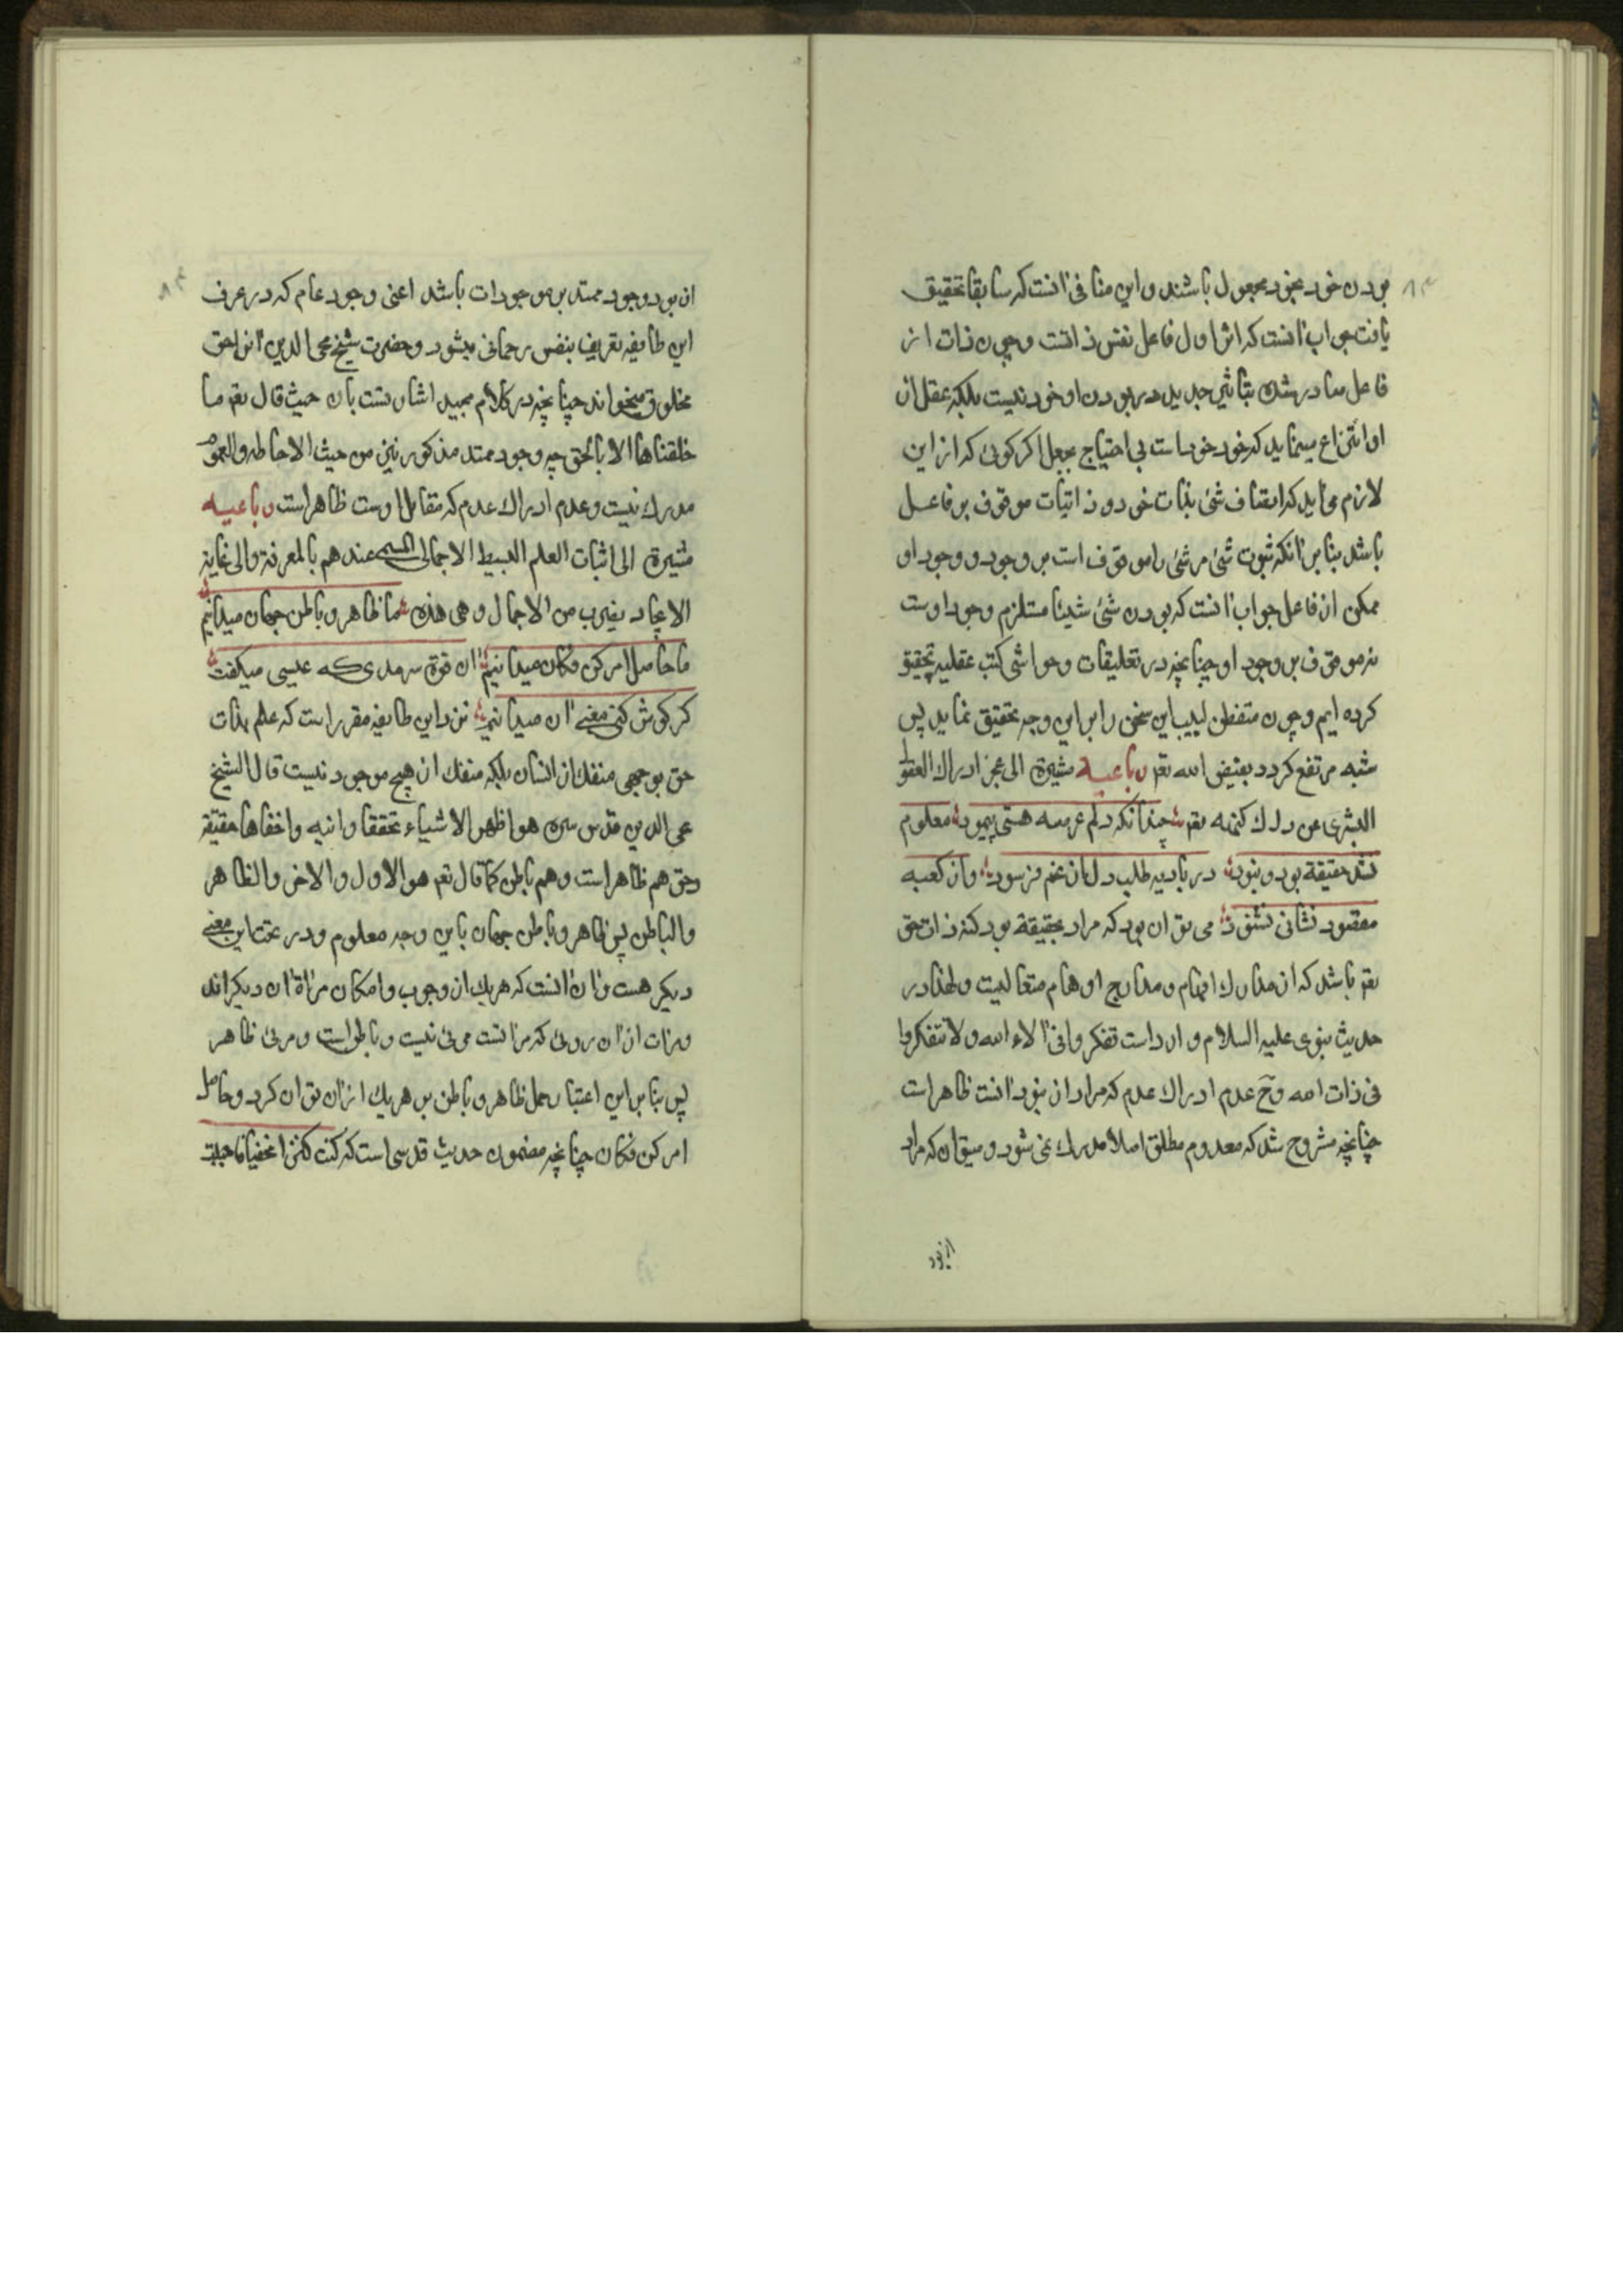 ۸۳
بودن خود بخود مجعول باشند و این منافی آنست که سابقا تحقیق
یافت جواب آنست که اثر اول فاعل نفس ذاتست و چون ذات از
فاعل صادر شد بتاثیر جدید در بودن او خود نیست بلکه عقل ازان
او انتزاع مینماید که خود خود است بی احتیاج بجعل اکر کوئی که از این
لازم می اید که اتصاف شئ بذات خود و ذاتیات موقوف بر فاعل
باشد بنا بر آنکه ثبوت شئ مر شئ را موقوف است بر وجود و وجود او
ممکن از فاعل جواب آنست که بودن شئ شیئا مستلزم وجود اوست
نه موقوف بر وجود او چنانچه در تعلیقات و حواشی کتب عقلیه تحقیق
کرده ایم و چون متفطن لبیب این سخن را بر این وجه تحقیق نماید پس
شبه مرتفع کردد بفیض الله تعم رباعیه مشیرة الی عجز ادراك العقول
البشری عن درك کنهه تعم چندانکه دلم عرصه هستی پیمود معلوم
نشد حقیقة بود و نبود در بادیه طلب دل از غم فرسود وان کعبه
مقصود نشانی نشنود می توان بود که مراد بحقیقة بود کنه ذات حق
تعم باشد که از مدارك افهام و مدارج اوهام متعالیست و لهذا در
حدیث نبوی علیه السلام وارد است تفکروا فی آلاء الله ولا تتفکروا
فی ذات الله وح عدم ادراك عدم که مراد از نبود آنست ظاهر است
چنانچه مشروح شد که معدوم مطلق اصلا مدرك نمی شود و میتوان که مراد
از بود
۸۴
از بود وجود ممتد بر موجودات باشد اعنی وجود عام که در عرف
این طایفه تعریف بنفس رحمانی میشود و حضرت شیخ محی الدین آنرا حق
مخلوق میخواند چنانچه در کلام مجید اشارتست بان حیث قال تعم ما
خلقناها الا بالحق چه وجود ممتد مذکور نیز من حیث الاحاطه والعموم
مدرك نیست و عدم ادراك عدم که مقابل اوست ظاهر است رباعیه
مشیرة الی اثبات العلم البسیط الاجمالی المسمی عندهم بالمعرفة والی غایة
الایجاد بضرب من الاجمال وهی هذه ما ظاهر و باطن جهان میدانیم
ما حاصل امر کن فکان میدانیم ان قوة سرمدی که عیسی میکفت
کر کوش کنی معنی ان میدانیم نزد این طایفه مقرر است که علم بذات
حق بوجهی منفك از انسان بلکه منفك از هیچ موجود نیست قال الشیخ
محی الدین قدس سره هو اظهر الاشیاء تحققا وانیه واخفاها حقیقة
وحق هم ظاهر است وهم باطن کما قال تعم هو الاول والاخر والظاهر
والباطن پس ظاهر و باطن جهان باین وجه معلوم و در تحت این معنی
دیکر هست وان آنست که هریك از وجوب و امکان مراة ان دیکراند
ومرات از ان روی که مراتست مرئی نیست و باطن است و مرئی ظاهر
پس بنا بر این اعتبار حمل ظاهر و باطن بر هریك ازان توان کرد و حاصل
امر کن فکان چنانچه مضمون حدیث قدسی است که کنت کنزا مخفیا فاحببت